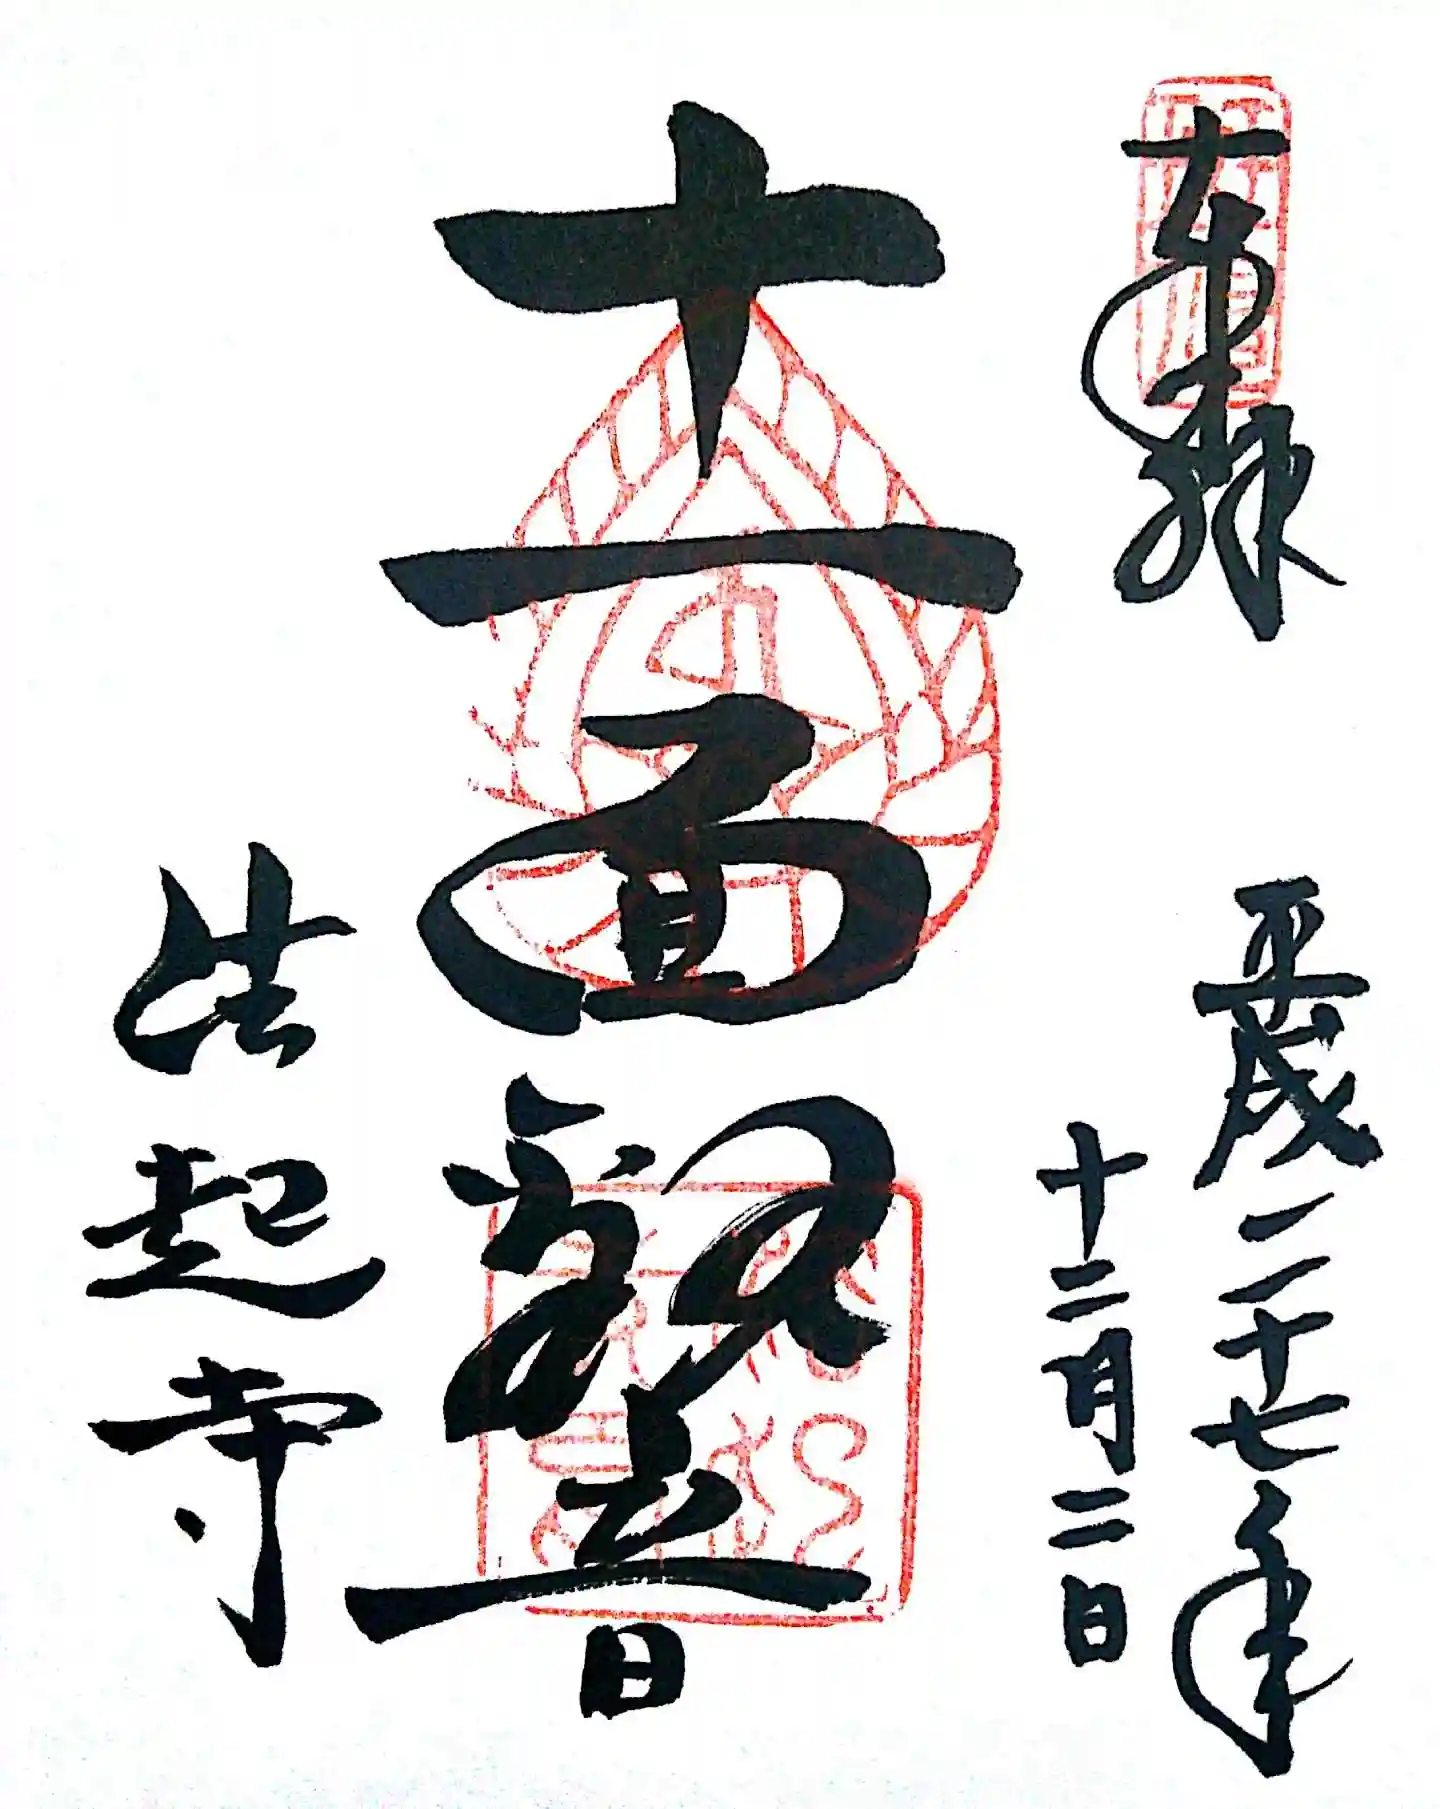 奉拝
平成二十七年
十二月二日
十一面観音
法起寺